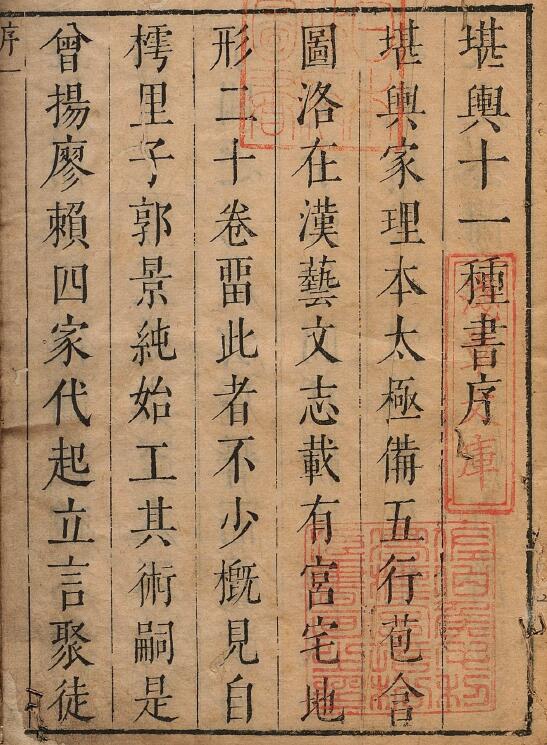 堪輿十一種書序
堪輿家理本太極備五行苞含
圖洛在漢藝文志載有宮宅地
形二十卷畱此者不少槪見自
樗里子郭景純始工其術嗣是
曾揚廖賴四家代起立言聚徒
序一